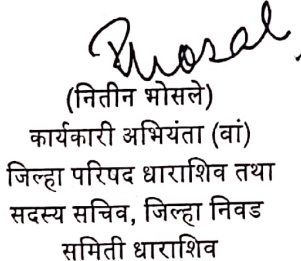 Bhosale
(नितीन भोसले)
कार्यकारी अभियंता (वां)
जिल्हा परिषद धाराशिव तथा
सदस्य सचिव, जिल्हा निवड
समिती धाराशिव